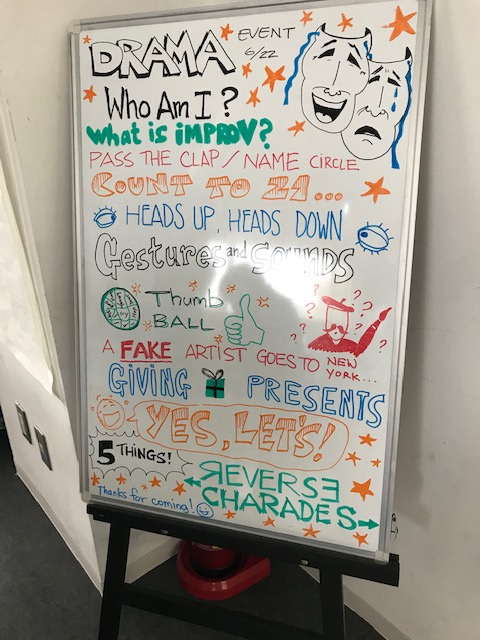 DRAMA EVENT 6/22
Who Am I?
What is iMPROV?
PASS THE CLAP / NAME CIRCLE
COUNT TO 21...
HEADS UP, HEADS DOWN
Gestures and Sounds
Thumb
BALL
A FAKE ARTIST GOES TO NEW
YORK....
GIVING PRESENTS
YES, LET'S!
5 THINGS!
REVERSE
CHARADES
Thanks for coming!